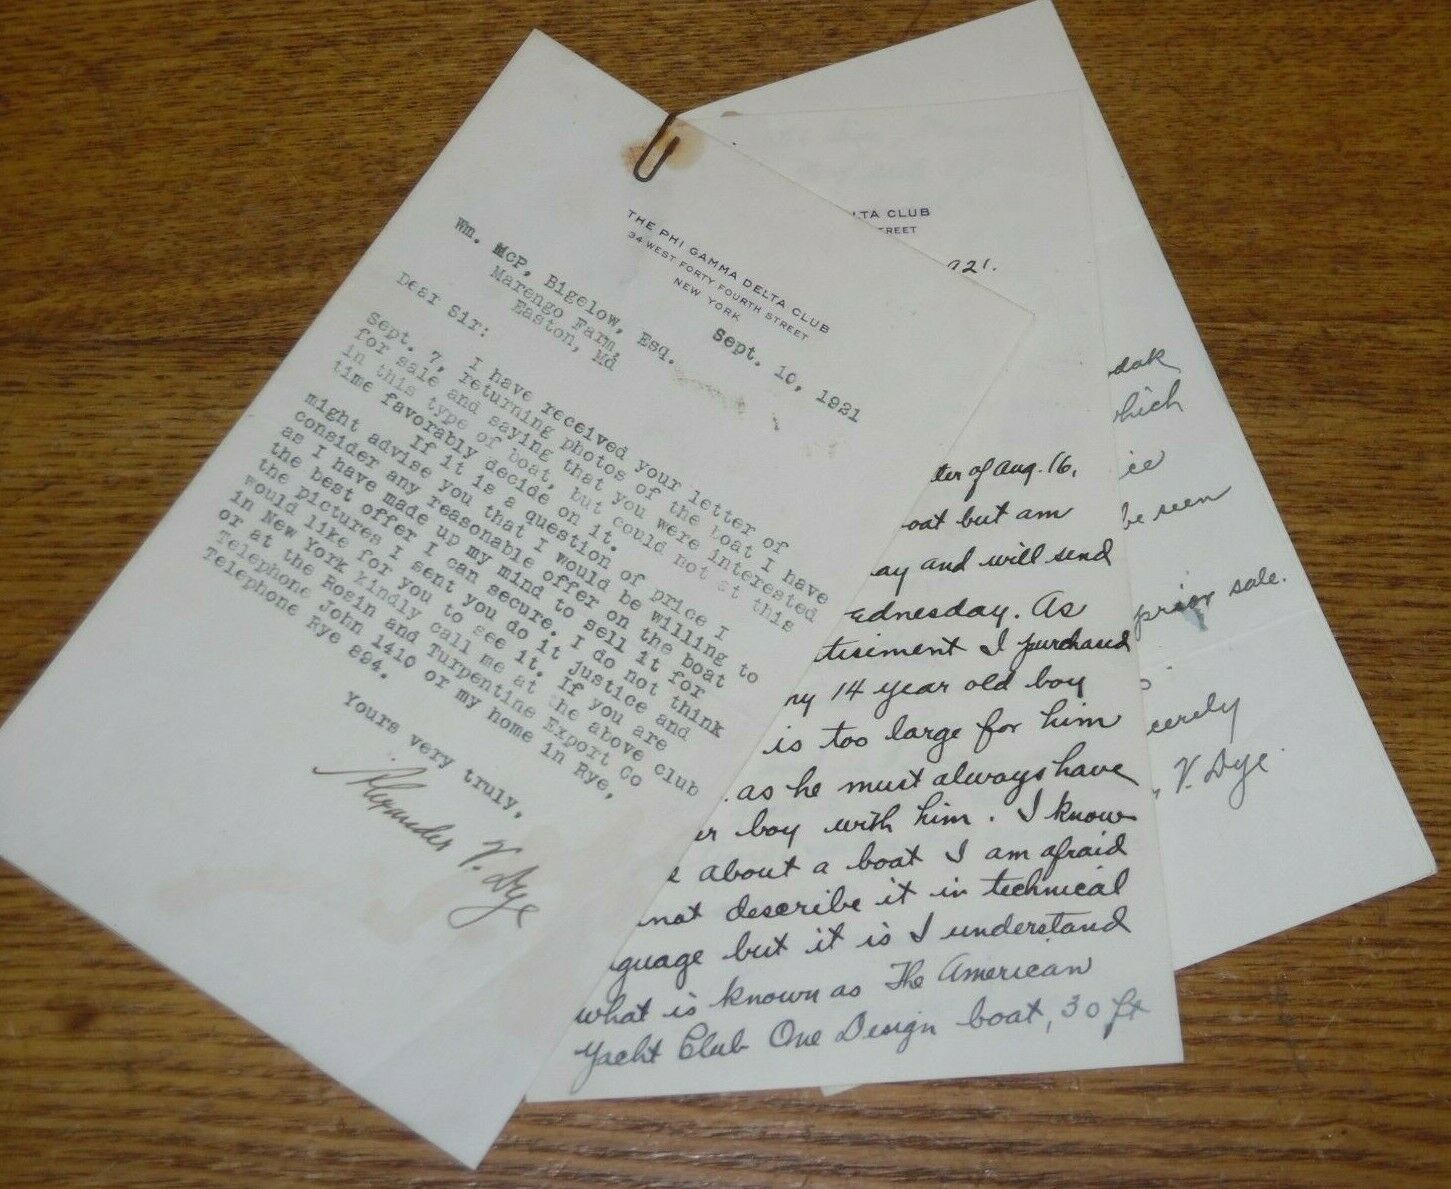 THE PHI GAMMA DELTA CLUB
34 WEST FORTY FOURTH STREET
NEW YORK
Sept. 10, 1921
Wm. McP, Bigelow, Esq.
Marengo Farm,
Easton, Md
Dear Sir:
I have received your letter of
Sept. 7, returning photos of the boat I have
for sale and saying that you were interested
in this type of boat, but could not at this
time favorably decide on it.
If it is a question of price I
might advise you that I would be willing to
consider any reasonable offer on the boat
as I have made up my mind to sell it for
the best offer I can secure. I do not think
the pictures I sent you do it justice and
would like for you to see it. If you are
in New York kindly call me at the above club
or at the Rosin and Turpentine Export Co
Telephone John 1410 or my home in Rye,
Telephone Rye 894.
Yours very truly,
Alexander V. Dye
LTA CLUB
STREET
921.
ter of Aug. 16,
oat but am
ay and will send
ednesday. As
tisiment I purchased
my 14 year old boy
is too large for him
. as he must always have
er boy with him. I know
about a boat I am afraid
not describe it in technical
guage but it is I understand
what is known as The American
Yacht Club One Design boat, 30 ft
dak
which
ice
be seen
prior sale.
cerely
V. Dye